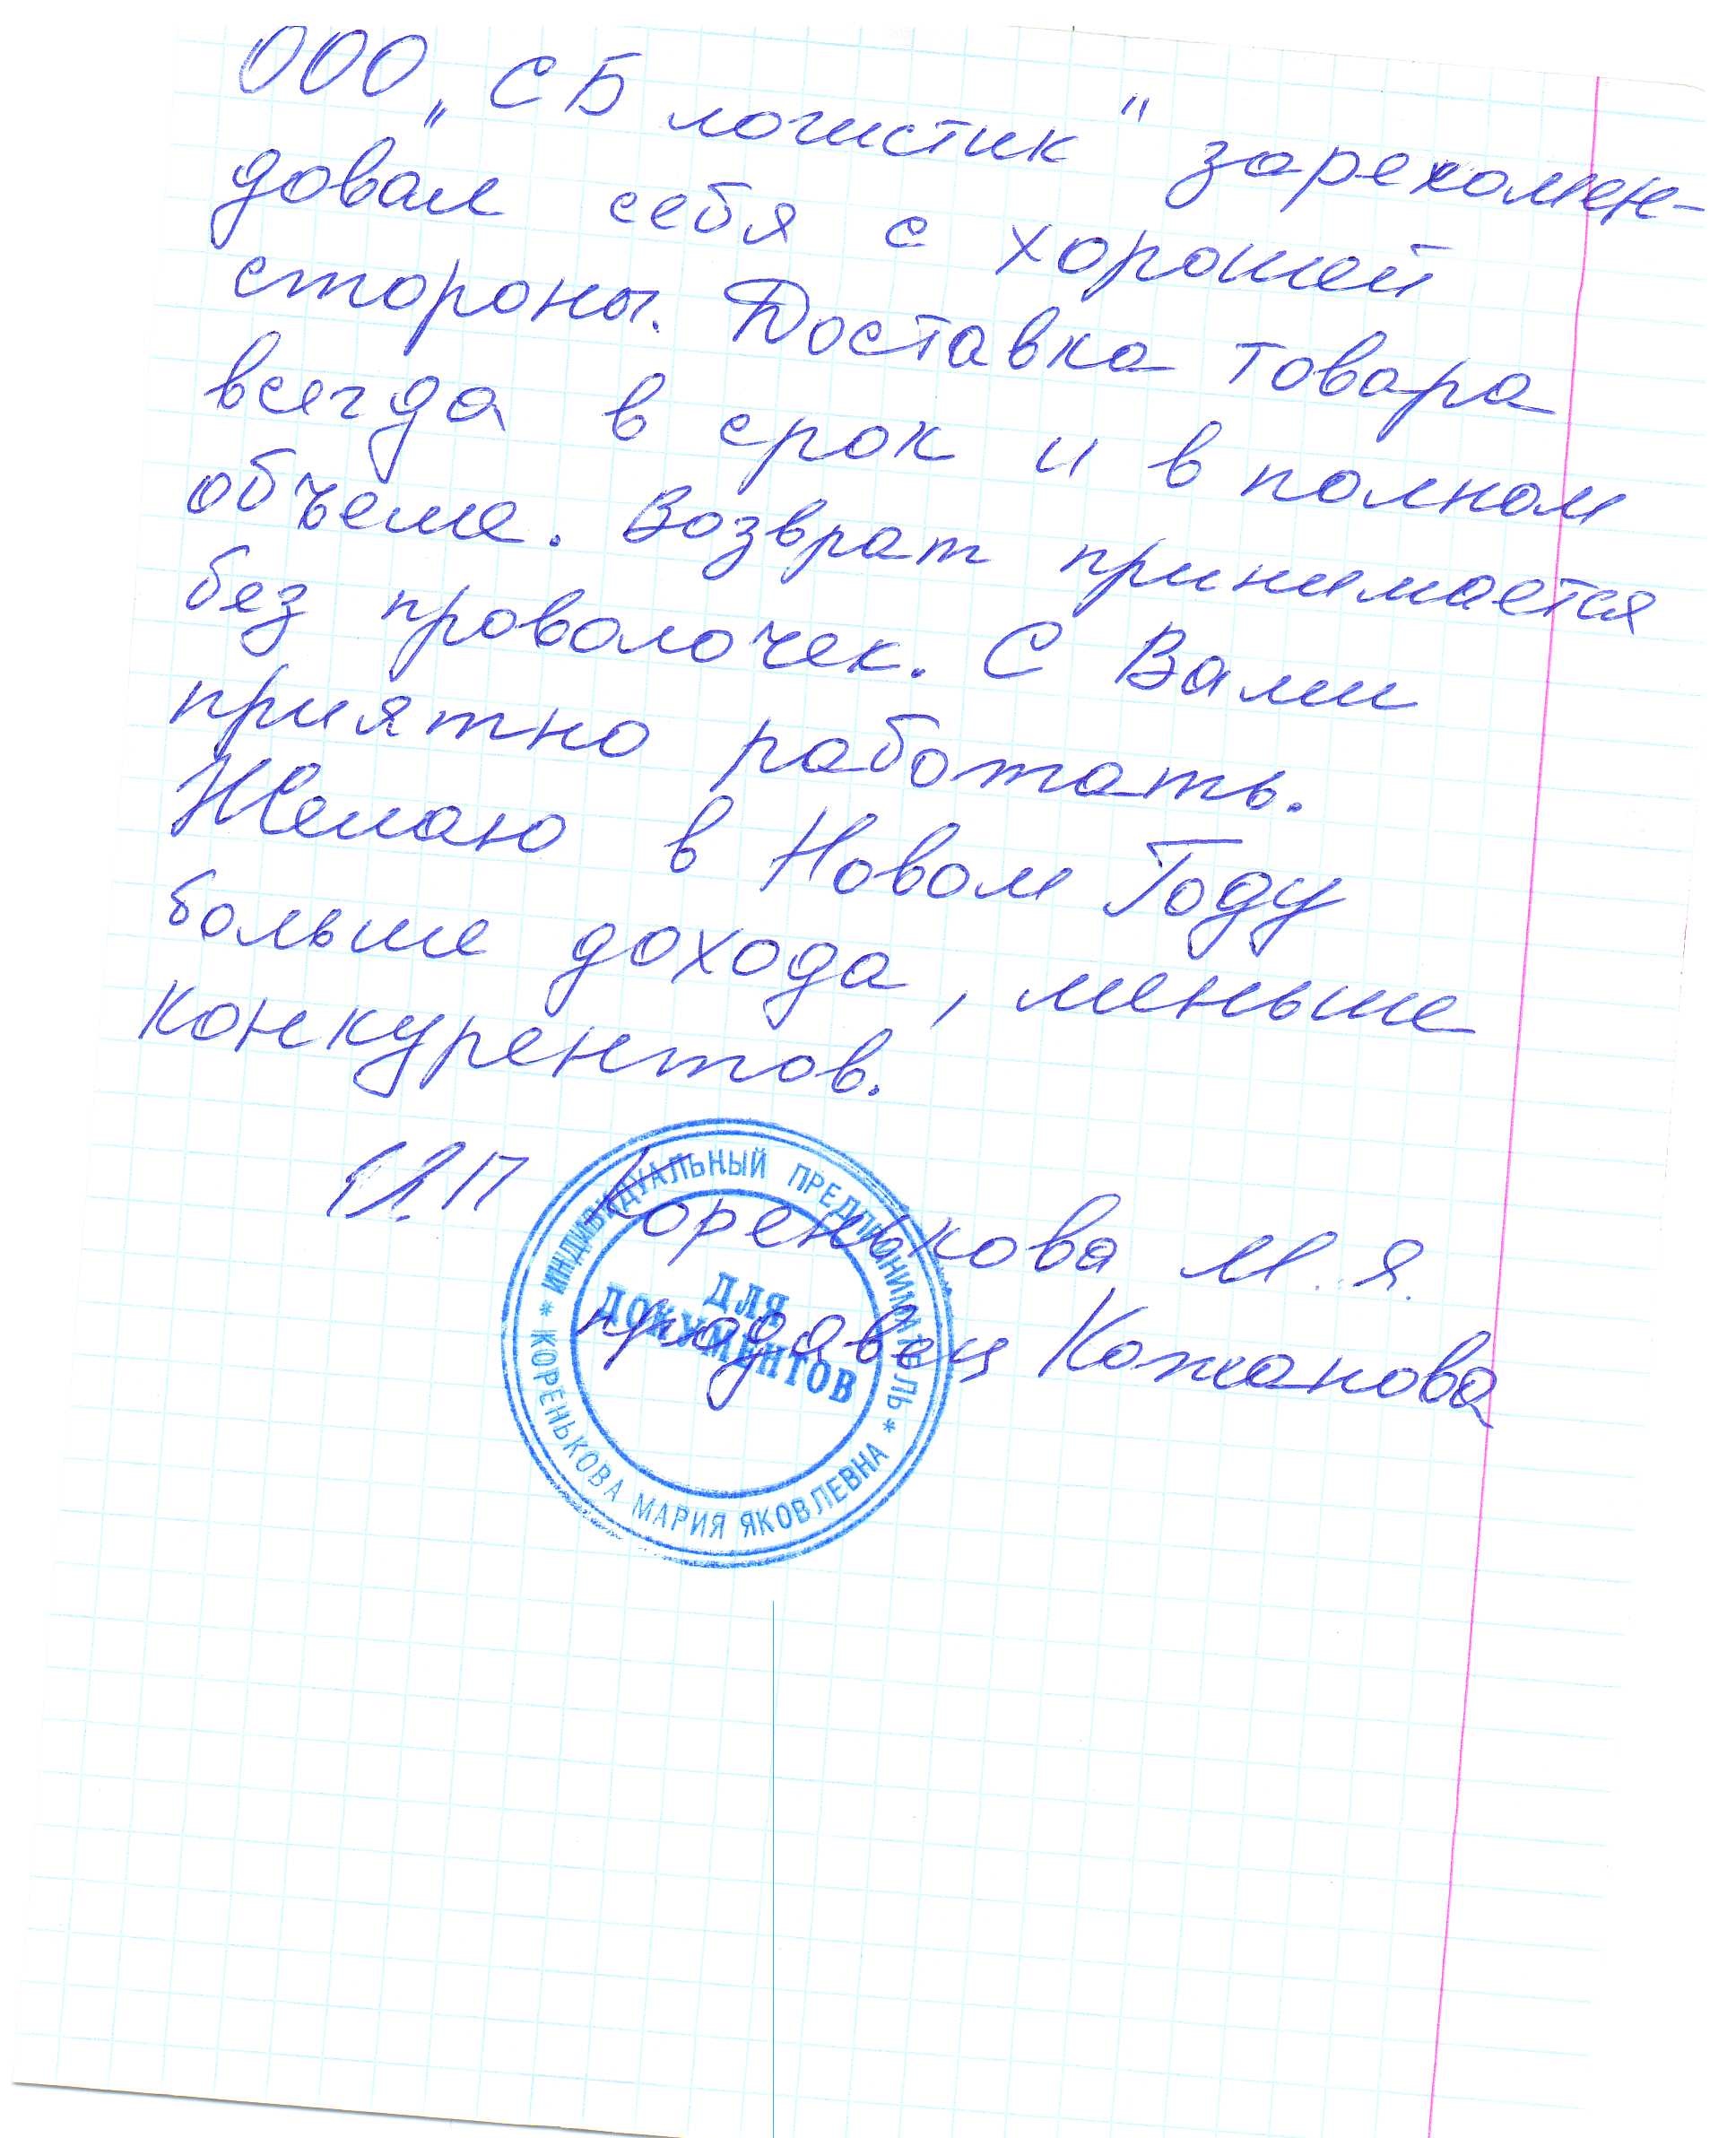 ООО „СБ логистик" зарекомен-
довал себя с хорошей
стороны. Доставка товара
всегда в срок и в полном
объеме. Возврат принимается
без проволочек. С Вами
приятно работать.
Желаю в Новом Году
больше дохода, меньше
конкурентов.
И.П Коренькова М.Я.
продавец Кожанова
* ИНДИВИДУАЛЬНЫЙ ПРЕДПРИНИМАТЕЛЬ *
КОРЕНЬКОВА МАРИЯ ЯКОВЛЕВНА
ДЛЯ
ДОКУМЕНТОВ